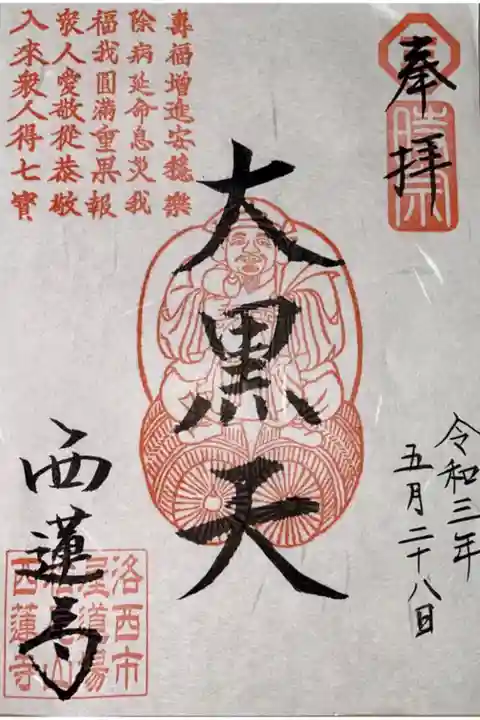 奉拝
時宗
令和三年
五月二十八日
大黒天
壽福增進安穏樂
除病延命息災我
福我圓滿重果報
衆人愛敬從恭敬
入來衆人得七寶
西蓮寺
洛西市
屋道場
西蓮寺